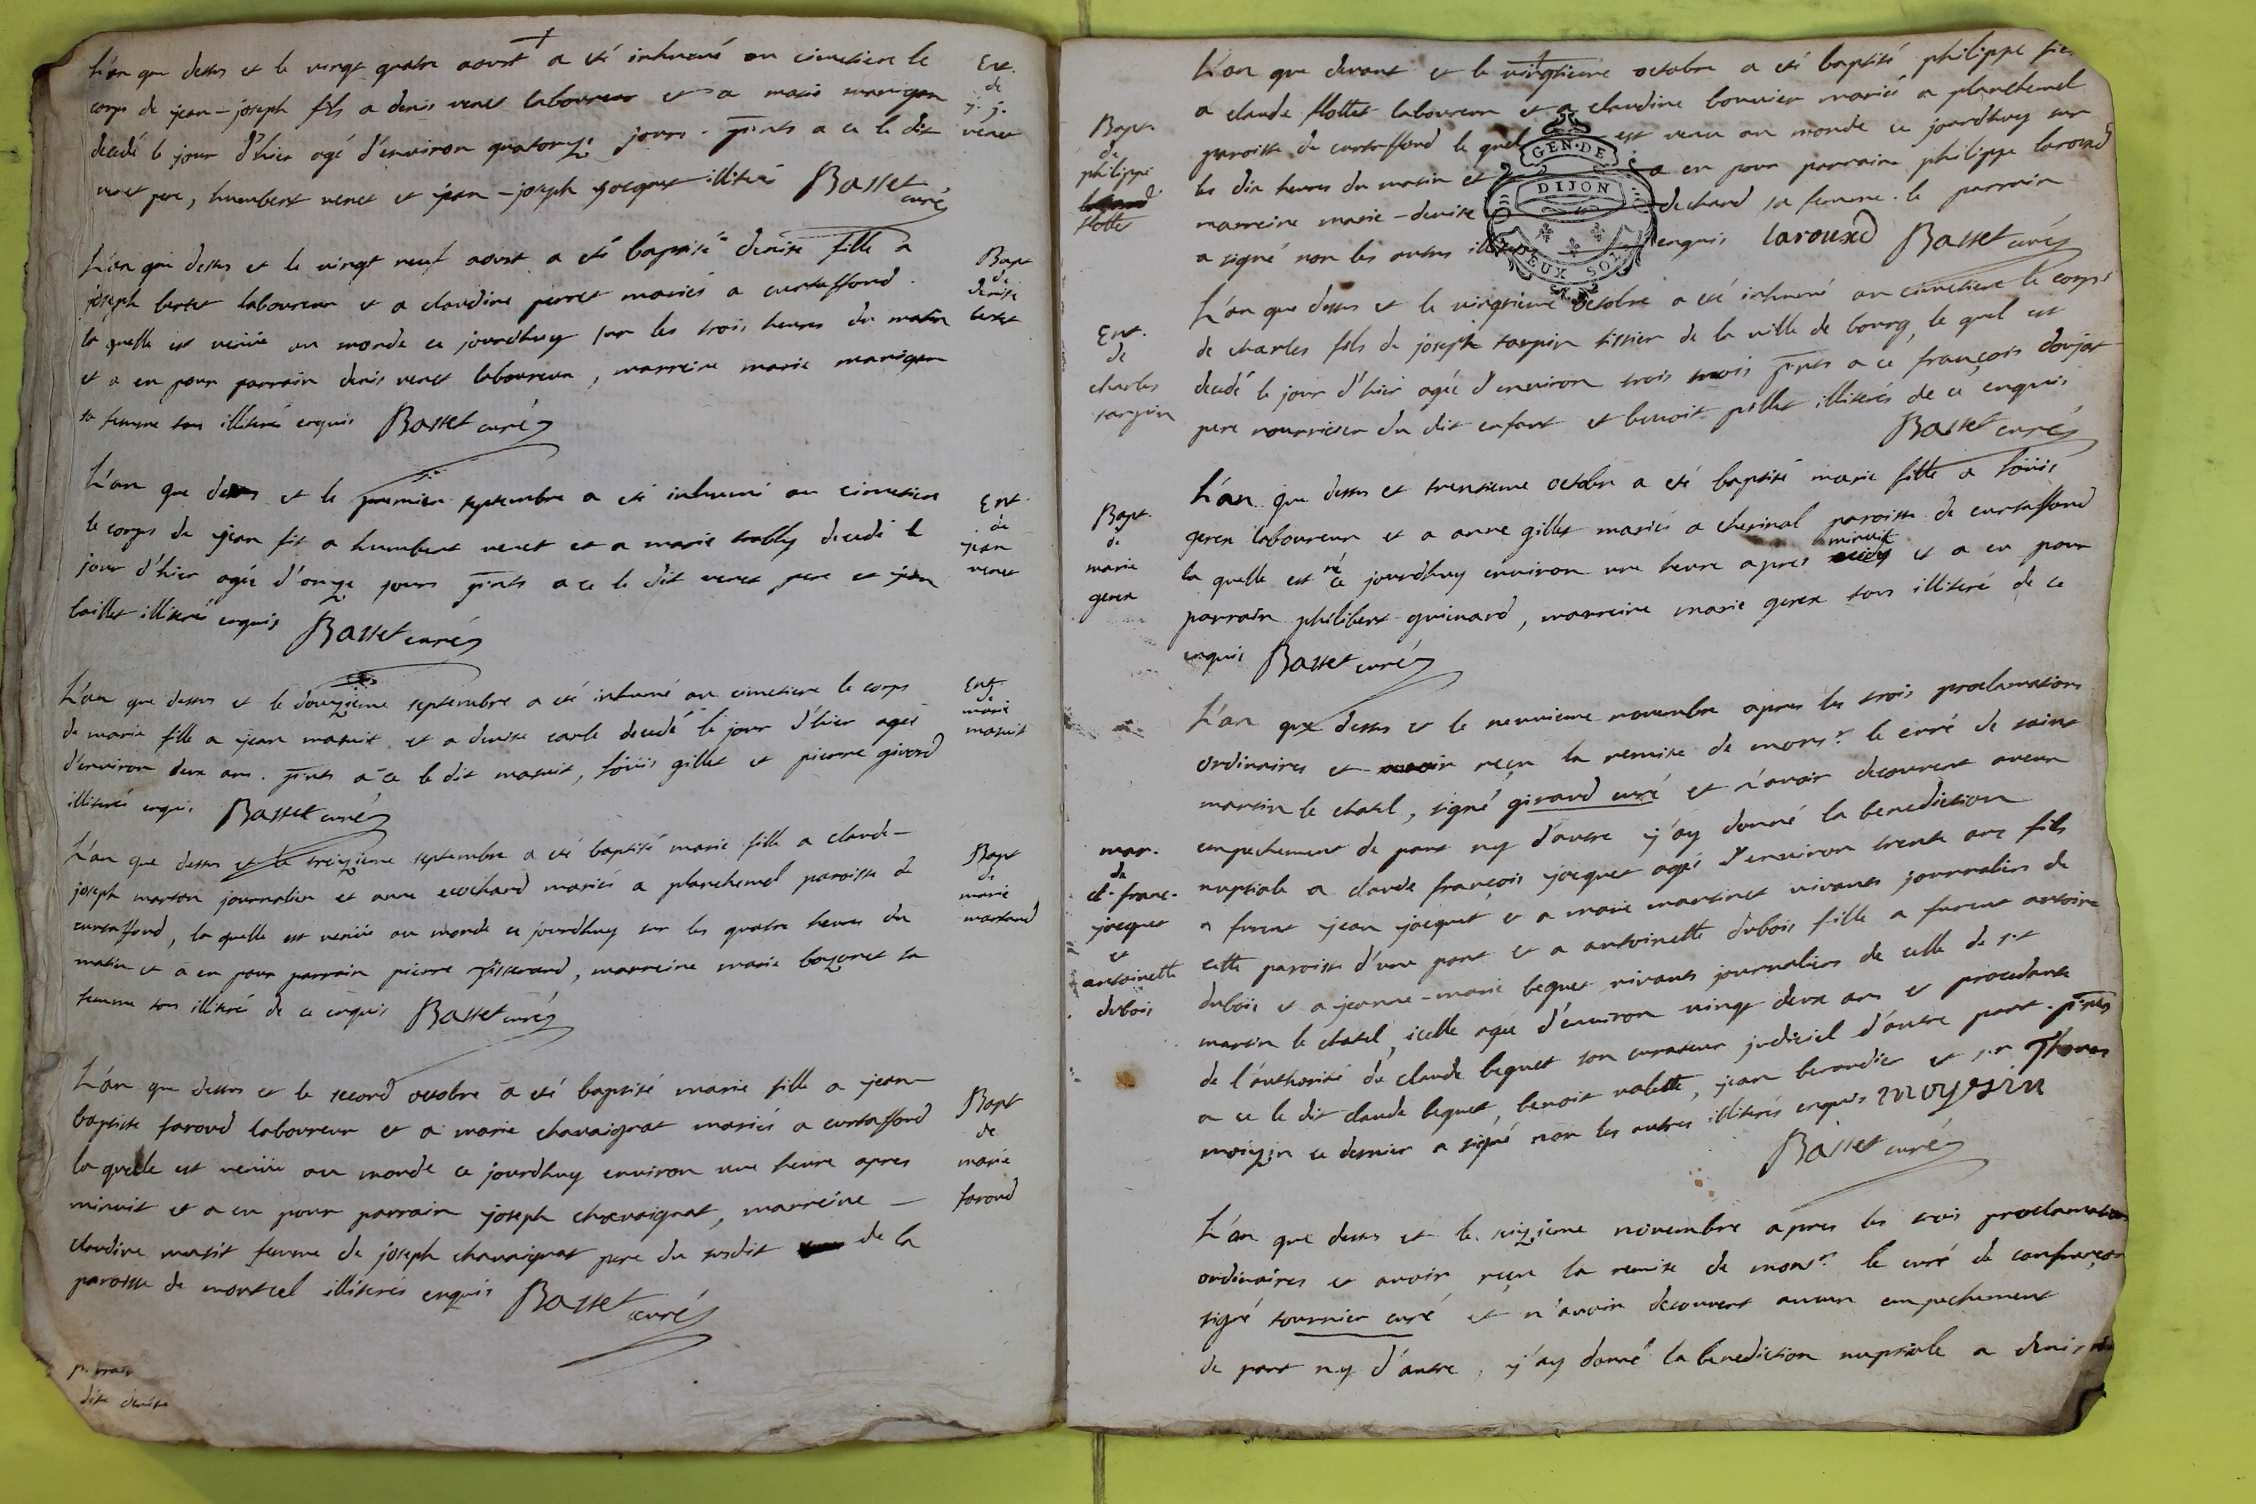 L'an que dessus et le vingt quatre aoust a eté inhumé au cimetiere le
corps de jean-joseph fils a denis venet laboureur et a marie manigan
decedé le jour d'hier agé d'environ quatorze jours. pnts a ce le dit
venet pere, humbert venet et jean-joseph jocquet illiteré Basset curé
Ent.
de
j. j.
venet
L'an que dessus et le vingt neuf aoust a eté baptisé denise fille a
joseph bertet laboureur et a claudine perret mariés a curtaffond.
la quelle est venüe au monde ce jourdhuy sur les trois heures du matin
et a eu pour parrain denis venet laboureur, marreine marie manigan
sa femme tous illiteré enquis Basset curé
Bapt
de
denise
bertet
L'an que dessus et le premier septembre a eté inhumé au cimetiere
le corps de jean fils a humbert venet et a marie trably decedé le
jour d'hier agée d'onze jours pnts a ce le dit venet pere et jean
baillet illiteré enquis Basset curé
Ent
de
jean
venet
L'an que dessus et le douzieme septembre a eté inhumé au cimetiere le corps
de marie fille a jean matuit et a denise carle decedé le jour d'hier agée
d'environ deux ans. pnts a ce le dit matuit, loüis gillet et pierre givord
illiterés enquis Basset curé
Ent
de
marie
matuit
L'an que dessus et le treizieme septembre a eté baptisé marie fille a claude-
joseph marton journalier et anne ecochard mariés a planchemel paroisse de
curtaffond, la quelle est venüe au monde ce jourdhuy sur les quatre heures du
matin et a eu pour parrain pierre tisserand, marreine marie bozonet sa
femme tous illiteré de ce enquis Basset curé
Bapt
de
marie
martand
L'an que dessus et le second octobre a eté baptisé marie fille a jean-
baptiste farond laboureur et a marie chavaignat mariés a curtaffond
la quelle est venüe au monde ce jourdhuy environ une heure apres
minuit et a eu pour parrain joseph chavaignat, marreine -
claudine matit femme de joseph chavaignat pere du susdit de la
paroisse de montcel illiterés enquis Basset curé
Bapt
de
marie
farond
dite denise
L'an que devant et le vingtieme octobre a eté baptisé philippe fils
a claude flottet laboureur et a claudine bouvier mariés a planchemel
paroisse de curtaffond le quel est venu au monde ce jourdhuy sur
les dix heures du matin et a eu pour parrain philippe laroud
marreine marie-denise dechard sa femme. le parrain
a signé non les autres enquis larouxd Basset curé
Bapt.
de
philippe
flottet
GEN·DE
DIJON
DEUX SOLS
L'an que dessus et le vingtieme octobre a eté inhumé au cimetiere le corps
de charles fils de joseph tarpin tissier de la ville de bourg, le quel est
decedé le jour d'hier agée d'environ trois mois pnts a ce françois doujat
pere nourricier du dit enfant et benoit pillet illiterés de ce enquis
Basset curé
Ent.
de
charles
tarpin
L'an que dessus et trentieme octobre a eté baptisé marie fille a loüis
gerex laboureur et a anne gillet mariés a cherinal paroisse de curtaffond
la quelle est né ce jourdhuy environ une heure apres minuit et a eu pour
parrain philibert guinard, marreine marie gerex tous illiteré de ce
enquis Basset curé
Bapt.
de
marie
gerex
L'an que dessus et le neuvieme novembre apres les trois proclamations
ordinaires et avoir reçu la remise de monsr. le curé de saint
martin le chatel, signé girard curé et n'avoir decouvert aucun
empechement de part ny d'autre j'ay donné la benediction
nuptiale a claude françois jocquet agé d'environ trente ans fils
a furent jean jocquet et a marie martinet vivants journaliers de
cette paroisse d'une part et a antoinette dubois fille a furent antoine
dubois et a jeanne-marie bequet vivants journaliers de celle de st
martin le chatel, icelle agée d'environ vingt deux ans et procedante
de l'authorité de claude bequet son curateur judiciel d'autre part. pnts
a ce le dit claude bequet, benoit valette, jean berondier et sr Thomas
moizin ce dernier a signé non les autres illiterés enquis moyzin
Basset curé
mar.
de
cl. franc.
jocquet
et
antoinette
dubois
L'an que dessus et le seizieme novembre apres les trois proclamations
ordinaires et avoir reçu la remise de monsr. le curé de confrançon
signé tournier curé et n'avoir decouvert aucun empechement
de part ny d'autre, j'ay donné la benediction nuptiale a denis